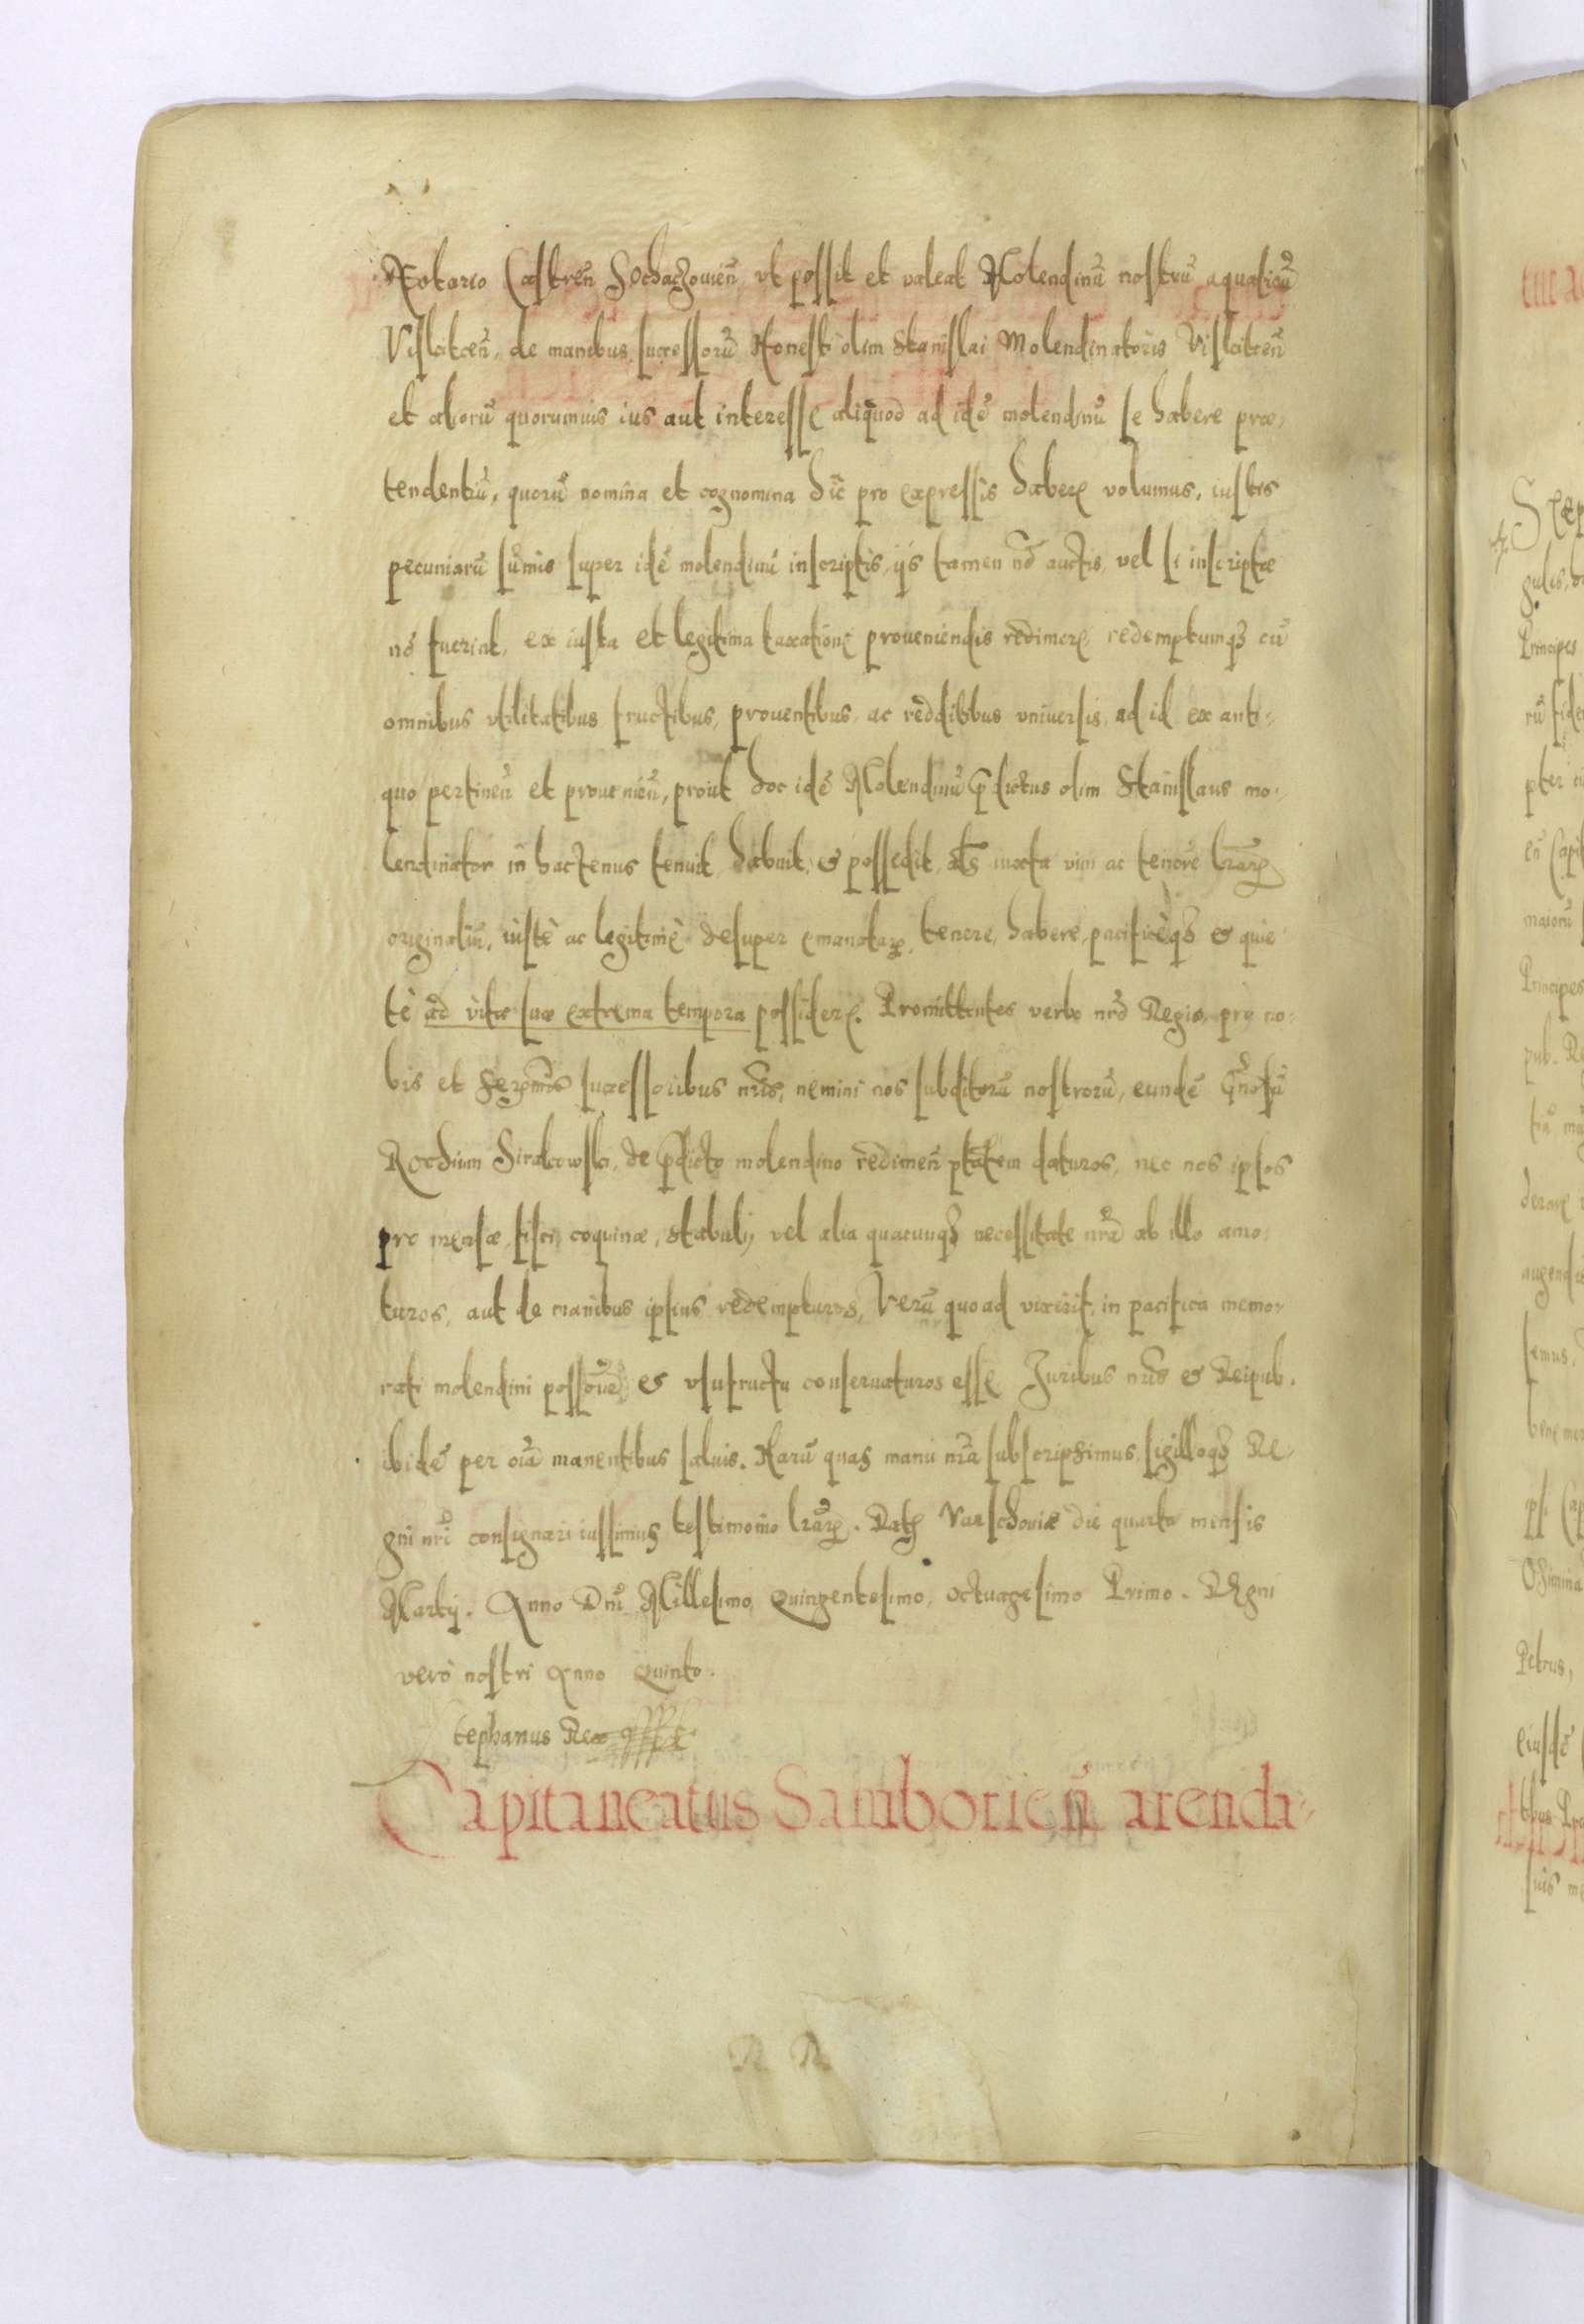 Notario Castreñ Sochaczovieñ vt possit et valeat Molendinũ nostrũ aquaticũ
Vislitceñ, de manibus successorũ Honesti olim Stanislai Molendinatoris Vislitceñ
et aliorũ quorumuis ius aut interesse aliquod ad idē molendinũ se habere præ,
tendentiũ, quorũ nomina et cognomina hic pro expressis habere volumus, iustis
pecuniarũ sũmis super idē molendinũ inscriptis, ijs tamen nō auctis, vel si inscriptæ
nō fuerint, ex iusta et legitima taxatione proueniendis redimere, redemptumq3 cũ
omnibus vtilitatibus fructibus, prouentibus, ac redditibus vniuersis, ad id ex anti-
quo pertineñ et prouenieñ, prout hoc idē Molendinũ p̄dictus olim Stanislaus mo-
lendinator in hactenus tenuit, habuit, & possedit, als iuxta vim ac tenorē lrarꝝ
originaliũ, iustè ac legitimè desuper emanatarꝝ, tenere, habere, pacificèq3 & quie
tè ad vitæ suæ extrema tempora possidere. Promittentes verbo nrõ Regio, pro no-
bis et Serēmis successoribus nr̃is, nemini nos subditorũ nostrorũ, eundē Gñosũ
Rochum Sirakowski, de p̄dicto molendino redimeñ ptãtem daturos, nec nos ipsos
pro mensæ, fisci, coquinæ, stabulij, vel alia quacunq3 necessitate nr̃a ab illo amo,
turos, aut de manibus ipsius redempturos, Verũ quoad vixerit, in pacifica memo-
rati molendini possõne & vsufructu conseruaturos esse. Juribus nr̃is & Reipub.
ibidē per oĩa manentibus saluis. Harũ quas manu nr̃a subscripsimus, sigilloq3 Re-
gni nr̃i consignari iussimus testimonio lrarꝝ. Datꝝ Varschouiæ die quarta mensis
Martij. Anno Dñi Millesimo, Quingentesimo, Octuagesimo Primo. Regni
vero nostri Anno Quinto.
tephanus Rex
Capitaneatus Samborieñ arenda-